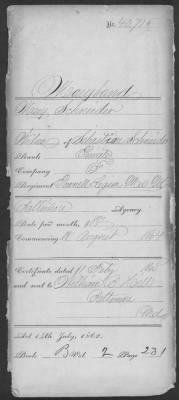 No. 42,714
Maryland
Mary Schneider
Widow of Sebastian Schneider
Rank Private
Company
Regiment Purnell Legion, Md. Vol
Baltimore Agency
Rate per month, $8
Commencing 11 August 1864
Certificate dated 11 July
and sent to William B. Hill
Baltimore
Md
Act 14th July, 1862.
Book B Vol. 2 Page 231